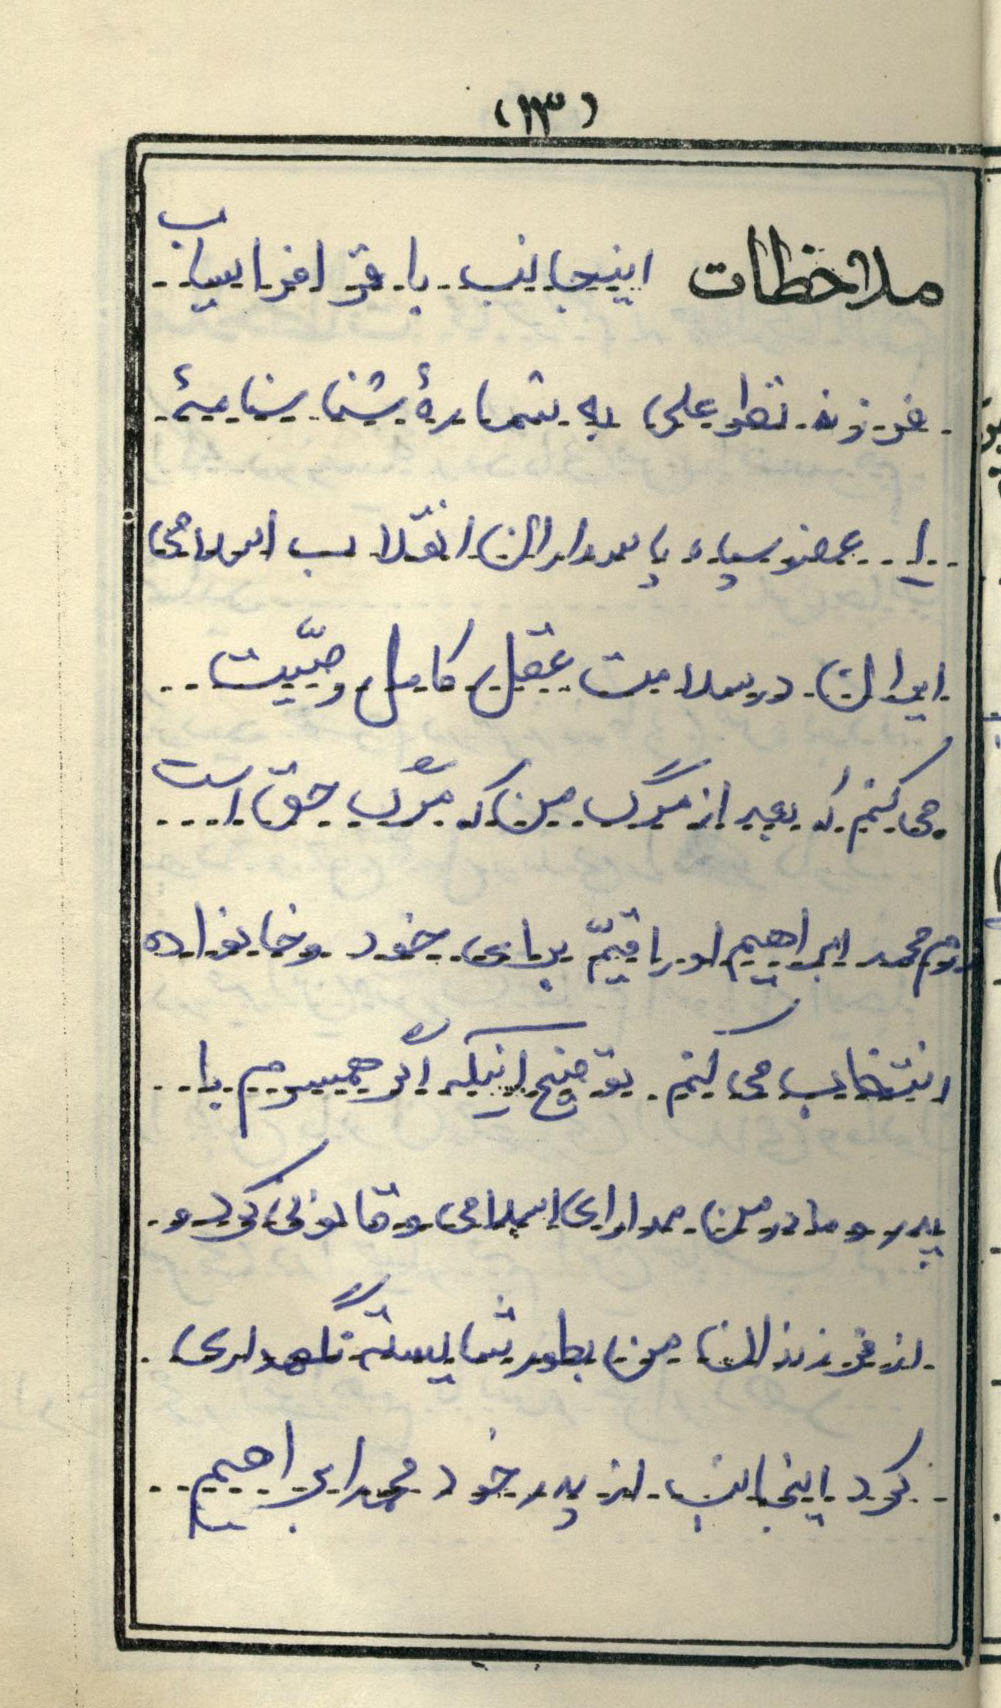 (۱۳)
ملاحظات اینجانب باقر افراسیاب
فرزند نظر علی به شمارهٔ شناسنامهٔ
۱ عضو سپاه پاسداران انقلاب اسلامی
ایران در سلامت عقل کامل وصّیت
می کنم که بعد از مرگ من که مرگ حق است
محمد ابراهیم او را قیّم برای خود و خانواده
انتخاب می کنم. توضیح اینکه اگر همسرم با
پدر و مادر من مدارای اسلامی و قانونی کرد و
از فرزندان من بطور شایسته نگهداری
کرد اینجانب از پدر خود محمد ابراهیم